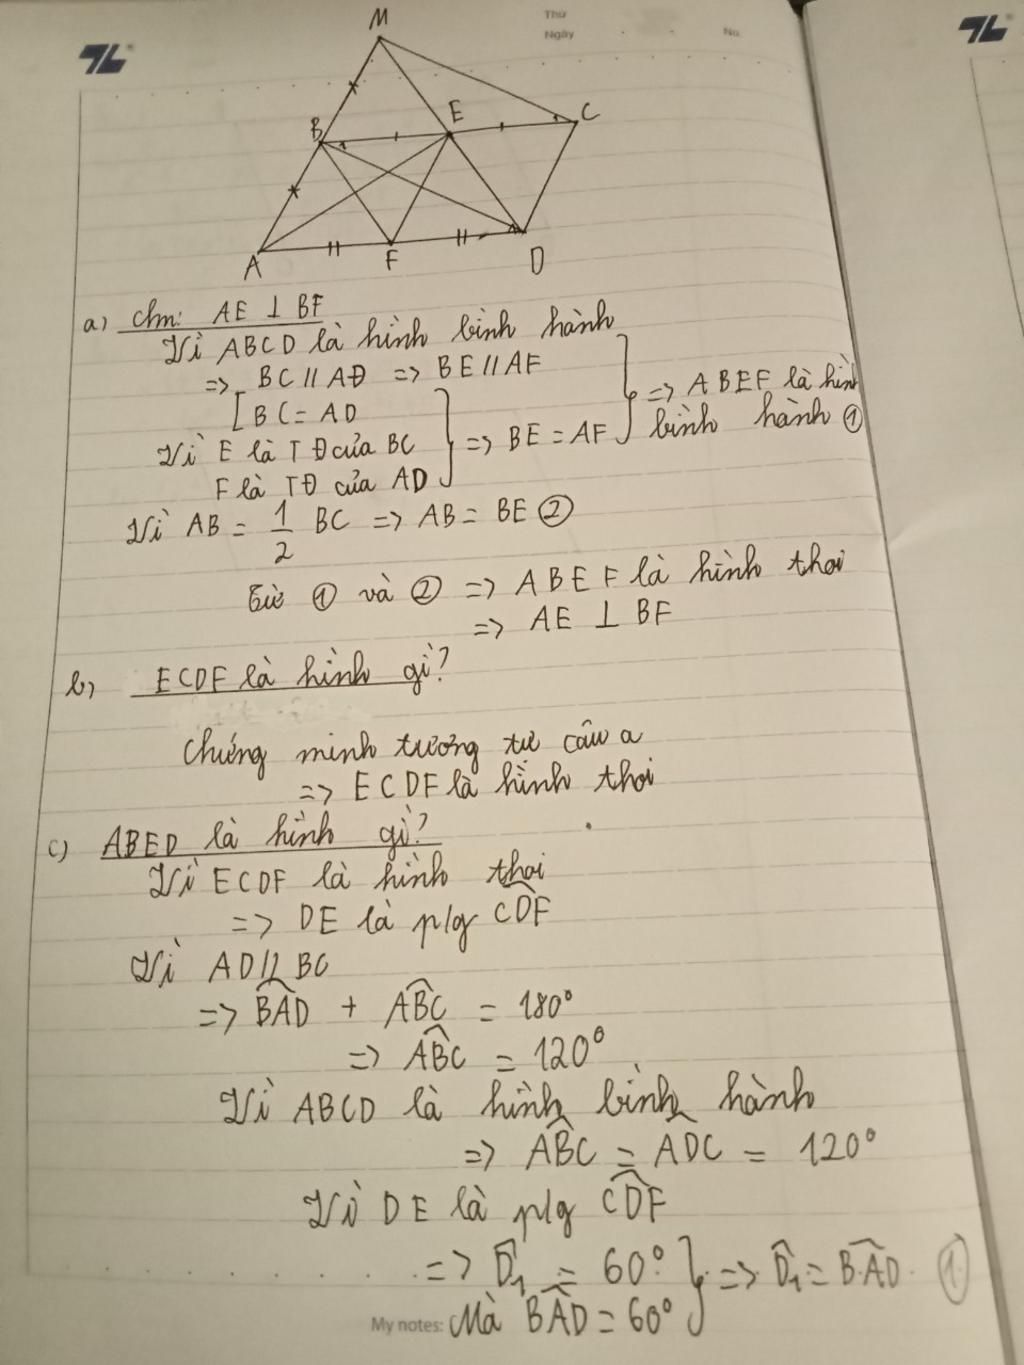 Thứ
Ngày
No.
M
B
E
C
A
F
D
a) Chm: AE ⊥ BF
Vì ABCD là hình bình hành
=> BC // AĐ => BE // AF
BC = AD
=> ABEF là hìn
bình hành ①
Vì E là TĐ của BC
=> BE = AF
F là TĐ của AD
Vì AB = 1/2 BC => AB = BE ②
Từ ① và ② => ABEF là hình thoi
=> AE ⊥ BF
b) ECDF là hình gì?
Chứng minh tương tự câu a
=> ECDF là hình thoi
c) ABED là hình gì?
Vì ECDF là hình thoi
=> DE là p/g CDF
Vì AD // BC
=> BAD + ABC = 180°
=> ABC = 120°
Vì ABCD là hình bình hành
=> ABC = ADC = 120°
Vì DE là p/g CDF
=> D₁ = 60° } => D₁ = BAD ①
My notes: Mà BAD = 60°